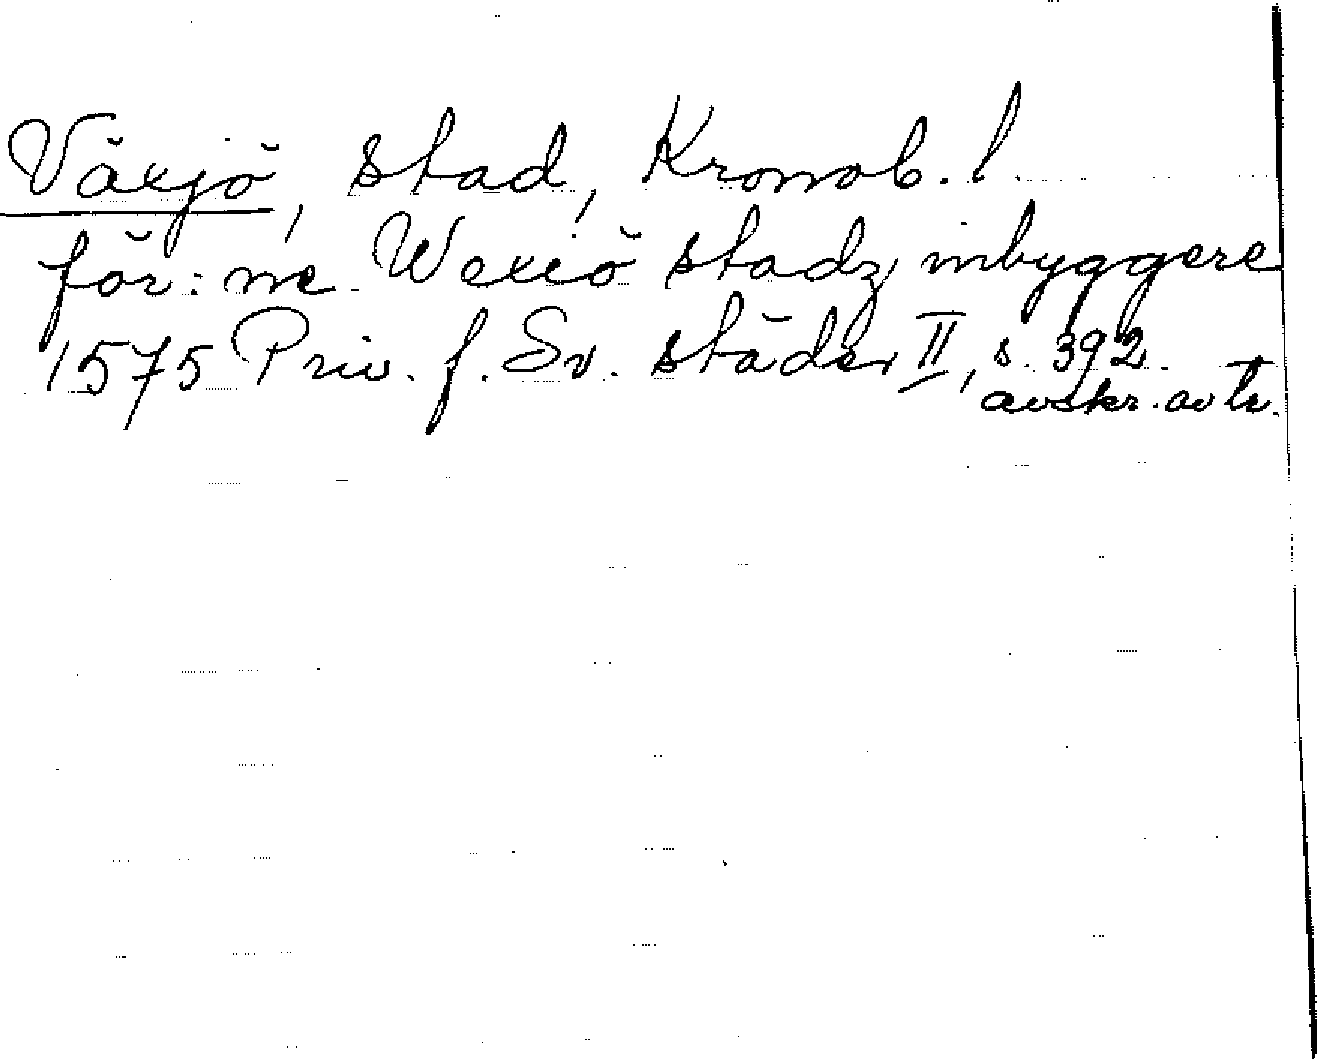 Växjö, stad, Kronob. l.
för: ne Wexiö stadz inbyggere
1575 Priv. f. Sv. städer II, s. 392.
avskr. av tr.